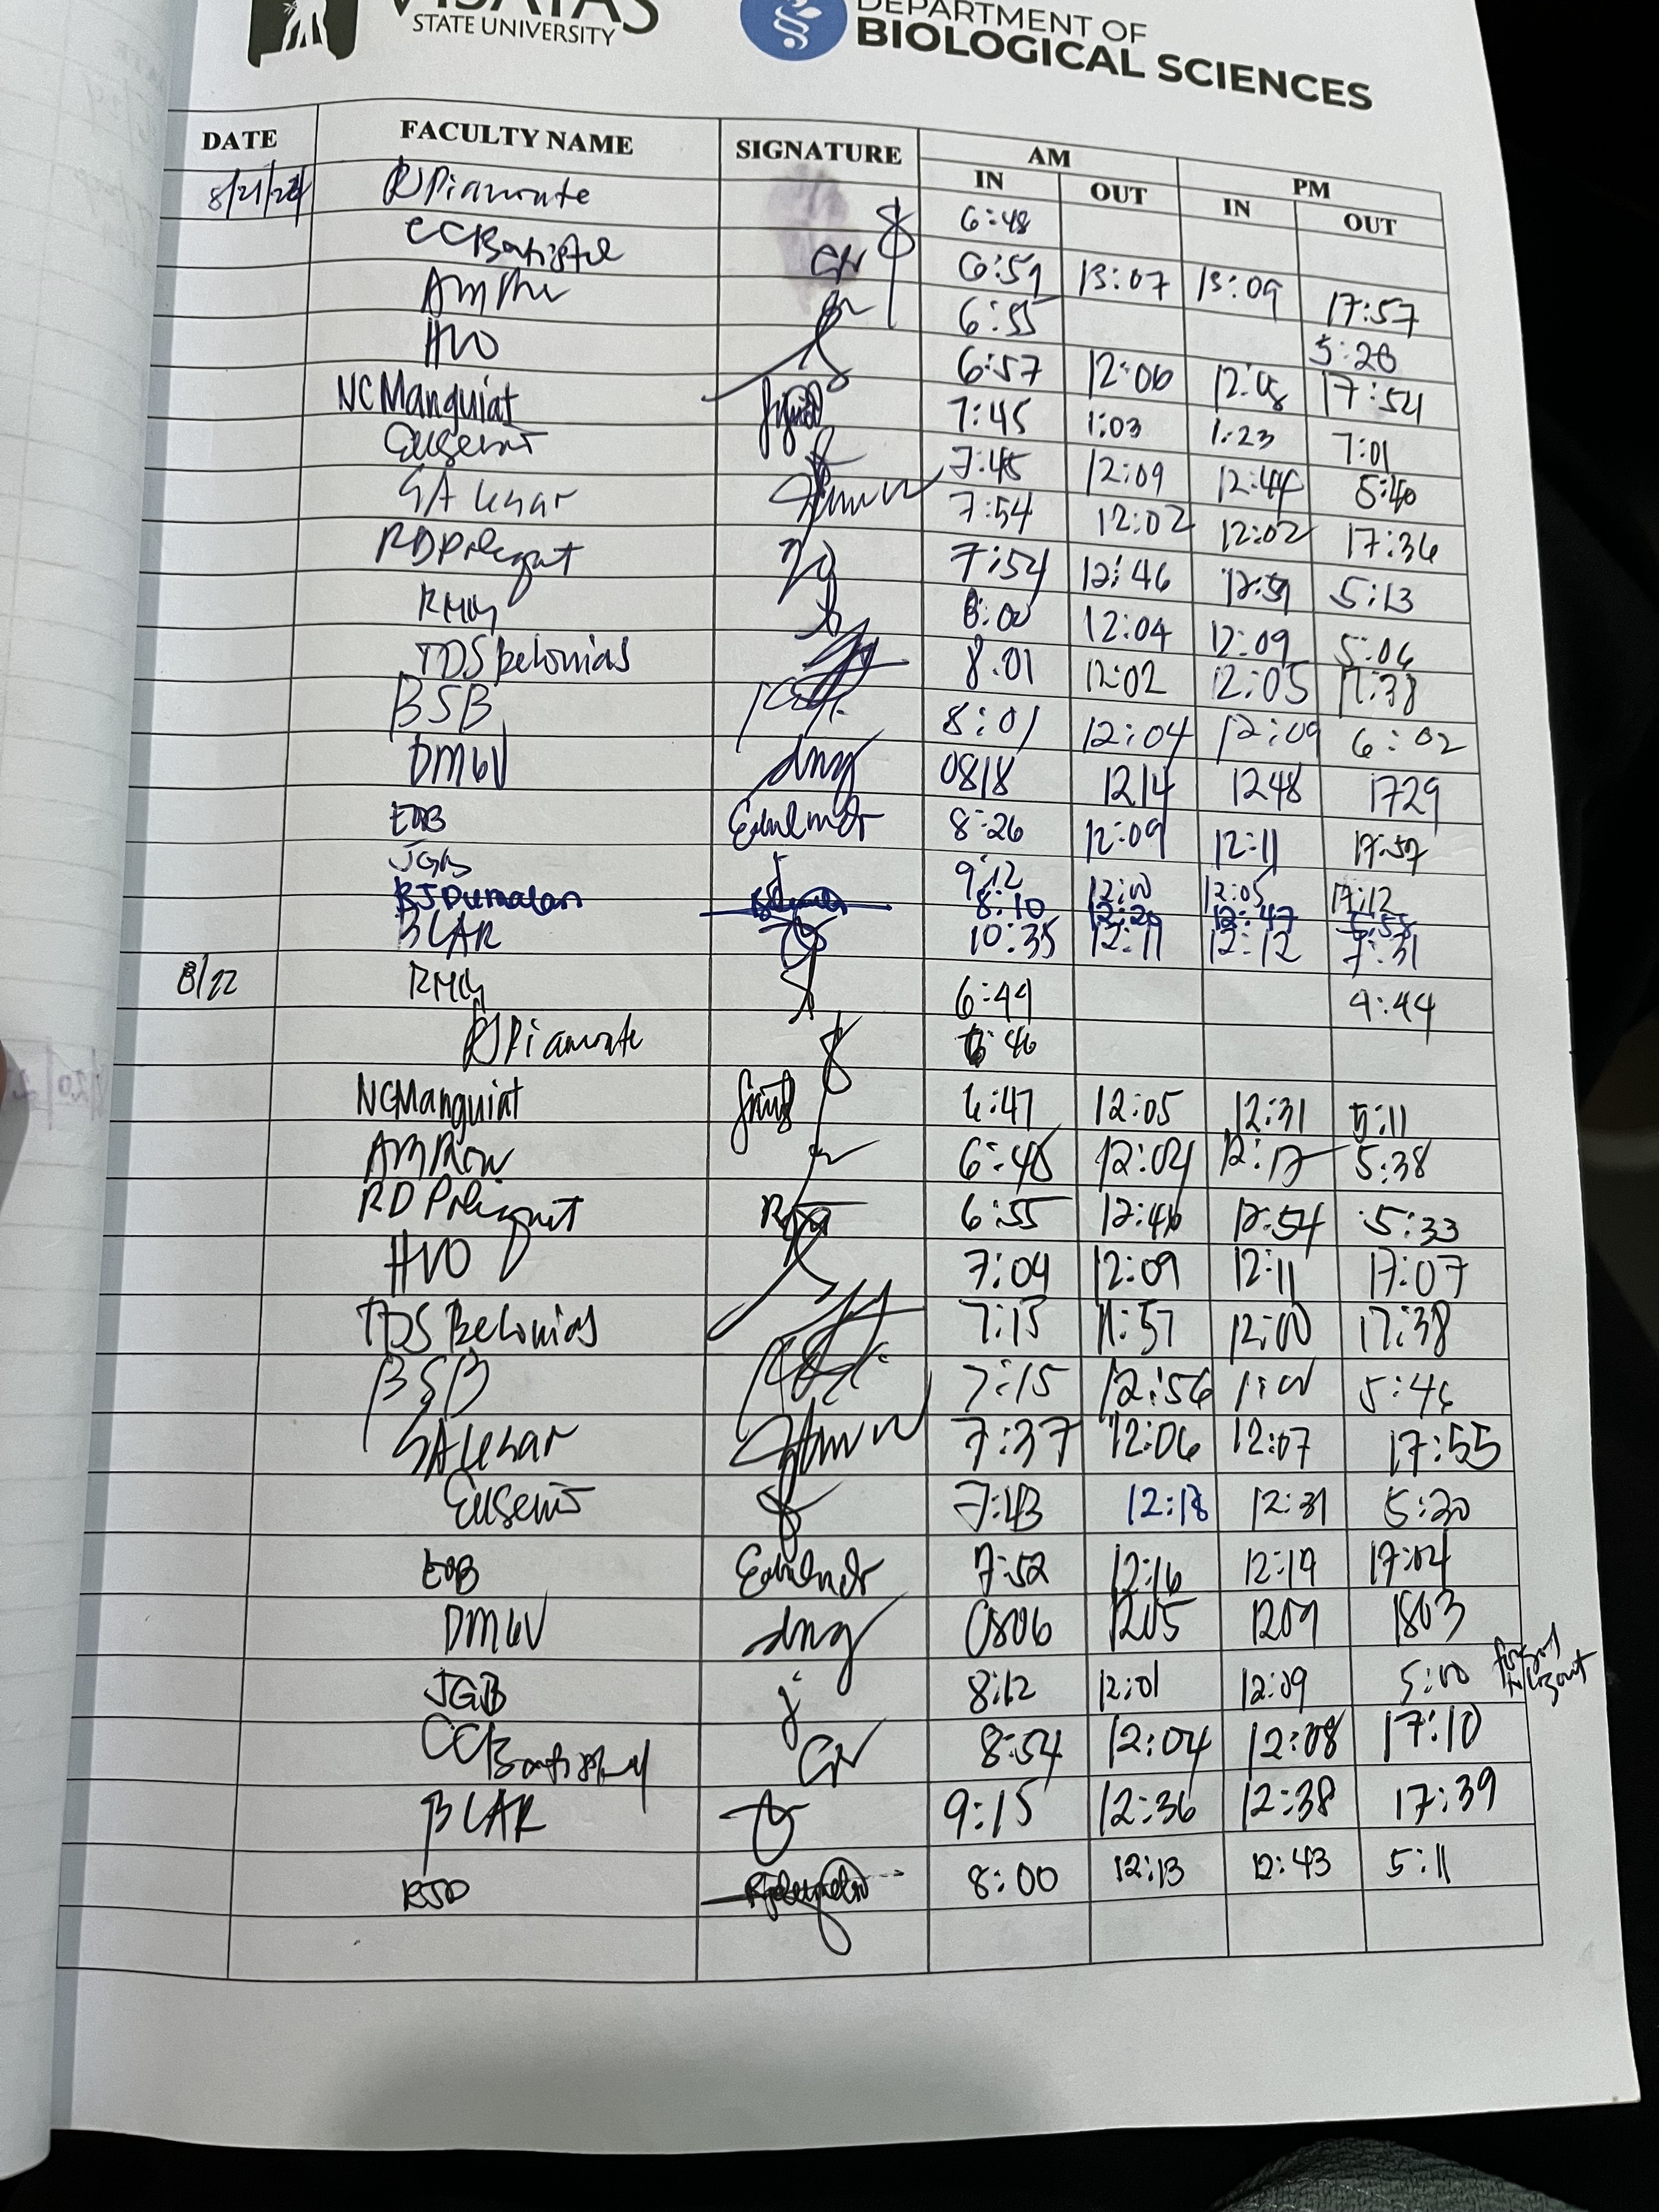 VISAYAS
STATE UNIVERSITY
DEPARTMENT OF
BIOLOGICAL SCIENCES
DATE FACULTY NAME SIGNATURE AM PM
IN OUT IN OUT
8/21/24 RJPiamonte 6:48
CCBatistel 6:59 13:07 13:09 17:57
6:55 5:20
HVO 6:57 12:06 12:08 17:54
NCManguiat 7:45 1:03 1:23 7:01
Eusenio 7:45 12:09 12:44 5:40
7:54 12:02 12:02 17:36
7:54 12:46 12:59 5:13
8:00 12:04 12:09 5:06
TDS Belonias 8:01 12:02 12:05 17:38
BSB 8:01 12:04 12:09 6:02
DMGV dmg 0818 1214 1248 1729
EOB 8:26 12:09 12:11 17:57
JGB 9:12 12:00 12:05 17:12
RJDumalan 8:10 12:20 12:47 5:58
BLAR 10:35 12:11 12:12 7:31
8/22 6:44 4:44
RJPiamonte 6:46
NCManguiat 6:47 12:05 12:31 5:11
6:48 12:04 12:17 5:38
6:55 12:46 12:54 5:33
HVO 7:04 12:09 12:11 17:07
TDS Belonias 7:15 11:57 12:00 17:38
BSB 7:15 12:56 1:00 5:46
7:37 12:06 12:07 17:55
Eusenio 7:43 12:18 12:31 5:20
EOB 7:52 12:16 12:19 17:04
DMGV dmg 0806 1205 1209 1803
JGB j 8:12 12:01 12:09 5:00 forgot to logout
CCBatistel 8:54 12:04 12:08 17:10
BLAR 9:15 12:36 12:38 17:39
RJD 8:00 12:13 12:43 5:11